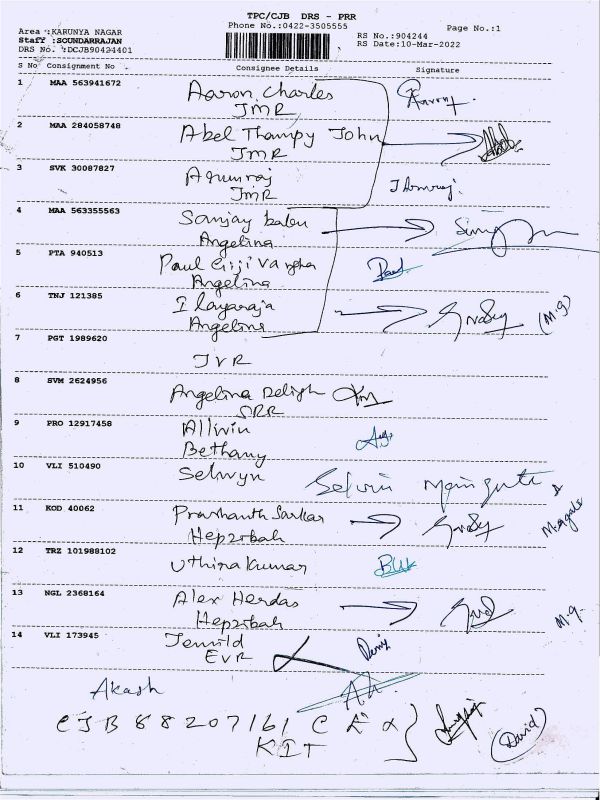 TPC/CJB DRS - PRR
Phone No.:0422-3505555
Page No.:1
Area :KARUNYA NAGAR
Staff :SOUNDARRAJAN
DRS No. :DCJB90424401
RS No.:904244
RS Date:10-Mar-2022
S No Consignment No Consignee Details Signature
1 MAA 563941672 Aaron Charles
JMR
2 MAA 284058748 Abel Thampy John
JMR
3 SVK 30087827
JMR
4 MAA 563355563 Sanjay babu
Angelina
5 PTA 940513 Paul
Angelina
6 TNJ 121385 Ilayaraja
Angeline
(M.g)
7 PGT 1989620 JVR
8 SVM 2624956 Angelina Deligh
SRR
9 PRO 12917458 Allwin
Bethany
10 VLI 510490 Selwyn
11 KOD 40062 Prashanth Sarkar
Hepzibah
12 TRZ 101988102 Uthirakumar
13 NGL 2368164 Alex Herdas
Hepzibah
M.g.
14 VLI 173945
EVR
Akash
CJB 88207161
KIT
David